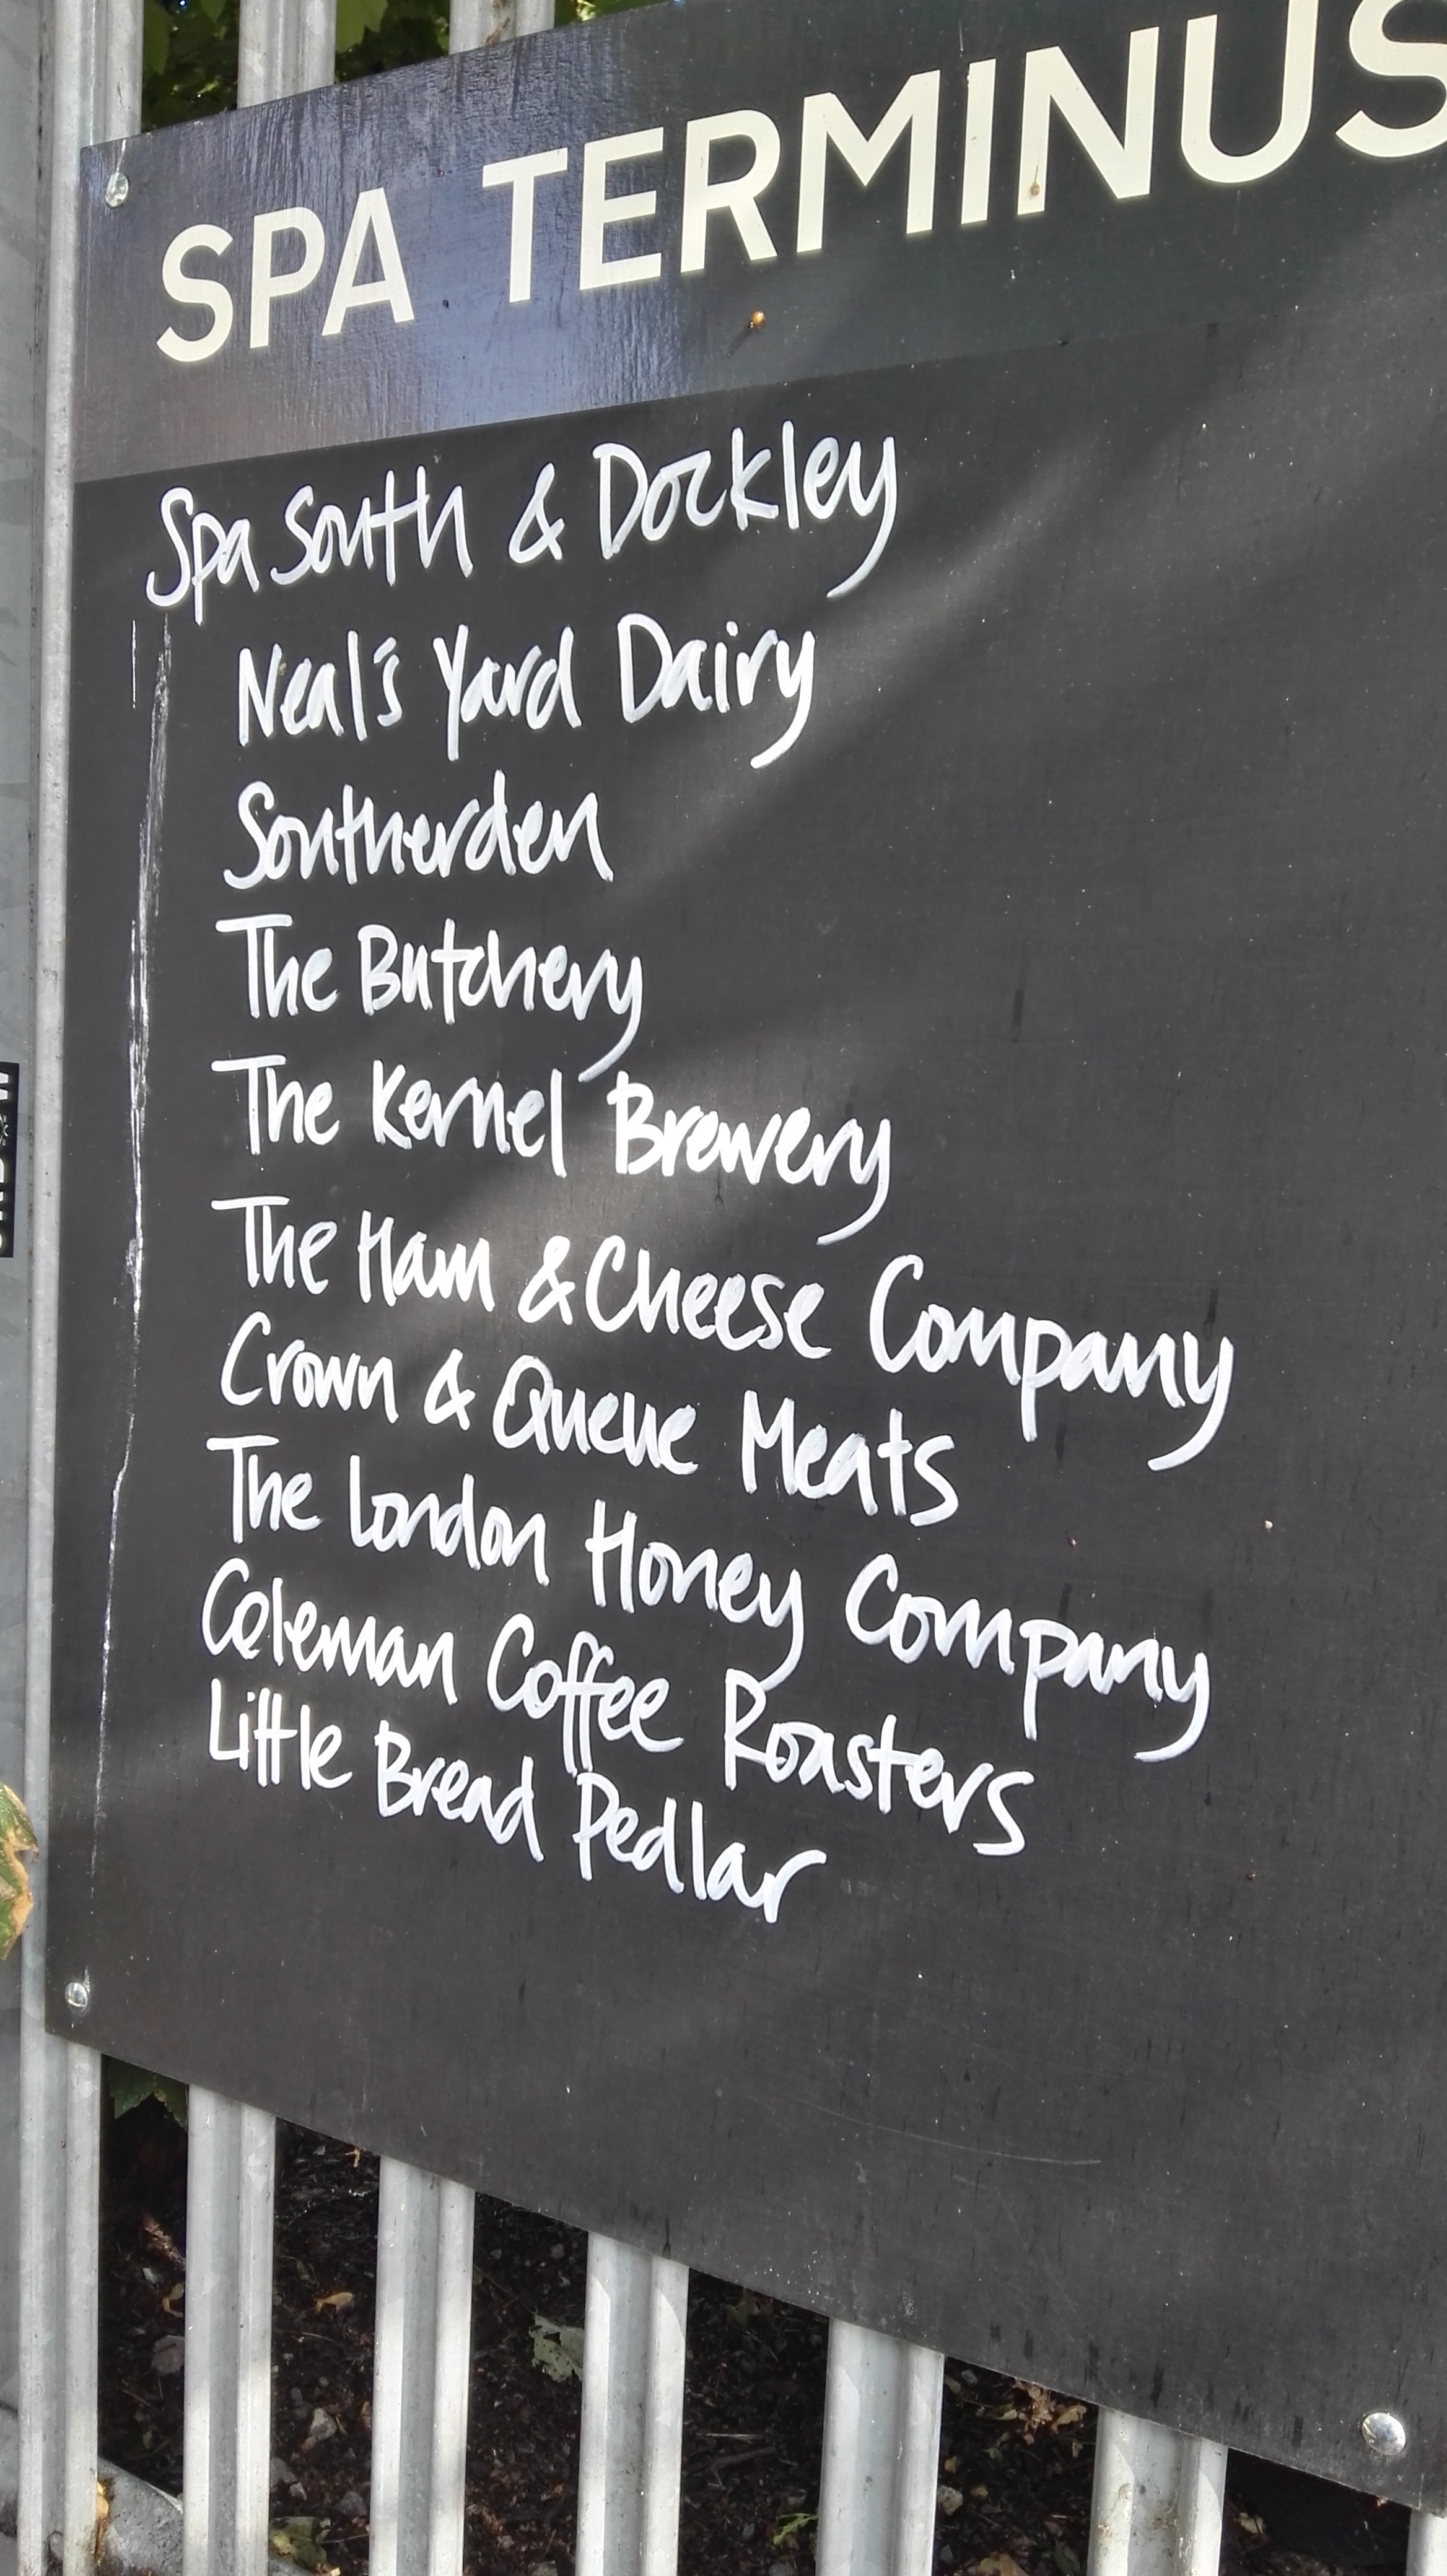 SPA TERMINUS
Spa South & Dockley
Neal's Yard Dairy
Southerden
The Butchery
The Kernel Brewery
The Ham & Cheese Company
Crown & Queue Meats
The London Honey Company
Coleman Coffee Roasters
Little Bread Pedlar